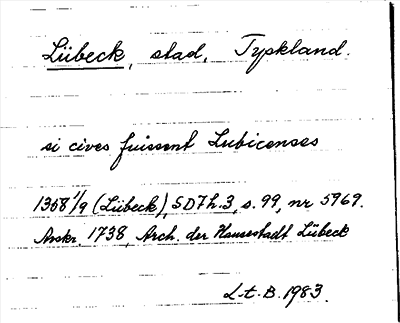 Lübeck, stad, Tyskland.
si cives fuissent Lubicenses
1368 1/9 (Lübeck), SD 7 h. 3, s. 99, nr 5969.
Avskr. 1738, Arch. der Hansestadt Lübeck
L.t.B. 1983.